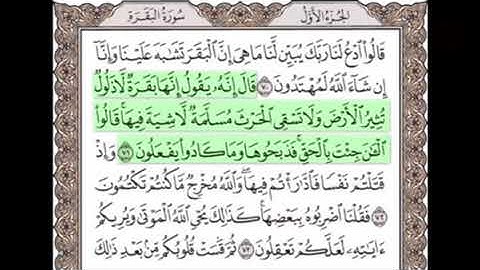 سُورَةُ البَقَرَةِ الجُزْءُ الأَوَّلُ
قَالُوا۟ ٱدْعُ لَنَا رَبَّكَ يُبَيِّن لَّنَا مَا هِىَ إِنَّ ٱلْبَقَرَ تَشَٰبَهَ عَلَيْنَا وَإِنَّآ
إِن شَآءَ ٱللَّهُ لَمُهْتَدُونَ ٧٠ قَالَ إِنَّهُۥ يَقُولُ إِنَّهَا بَقَرَةٌ لَّا ذَلُولٌ
تُثِيرُ ٱلْأَرْضَ وَلَا تَسْقِى ٱلْحَرْثَ مُسَلَّمَةٌ لَّا شِيَةَ فِيهَا ۚ قَالُوا۟
ٱلْـَٰٔنَ جِئْتَ بِٱلْحَقِّ ۚ فَذَبَحُوهَا وَمَا كَادُوا۟ يَفْعَلُونَ ٧١ وَإِذْ
قَتَلْتُمْ نَفْسًا فَٱدَّٰرَْٰٔتُمْ فِيهَا ۖ وَٱللَّهُ مُخْرِجٌ مَّا كُنتُمْ تَكْتُمُونَ
٧٢ فَقُلْنَا ٱضْرِبُوهُ بِبَعْضِهَا ۚ كَذَٰلِكَ يُحْىِ ٱللَّهُ ٱلْمَوْتَىٰ وَيُرِيكُمْ
ءَايَٰتِهِۦ لَعَلَّكُمْ تَعْقِلُونَ ٧٣ ثُمَّ قَسَتْ قُلُوبُكُم مِّنۢ بَعْدِ ذَٰلِكَ